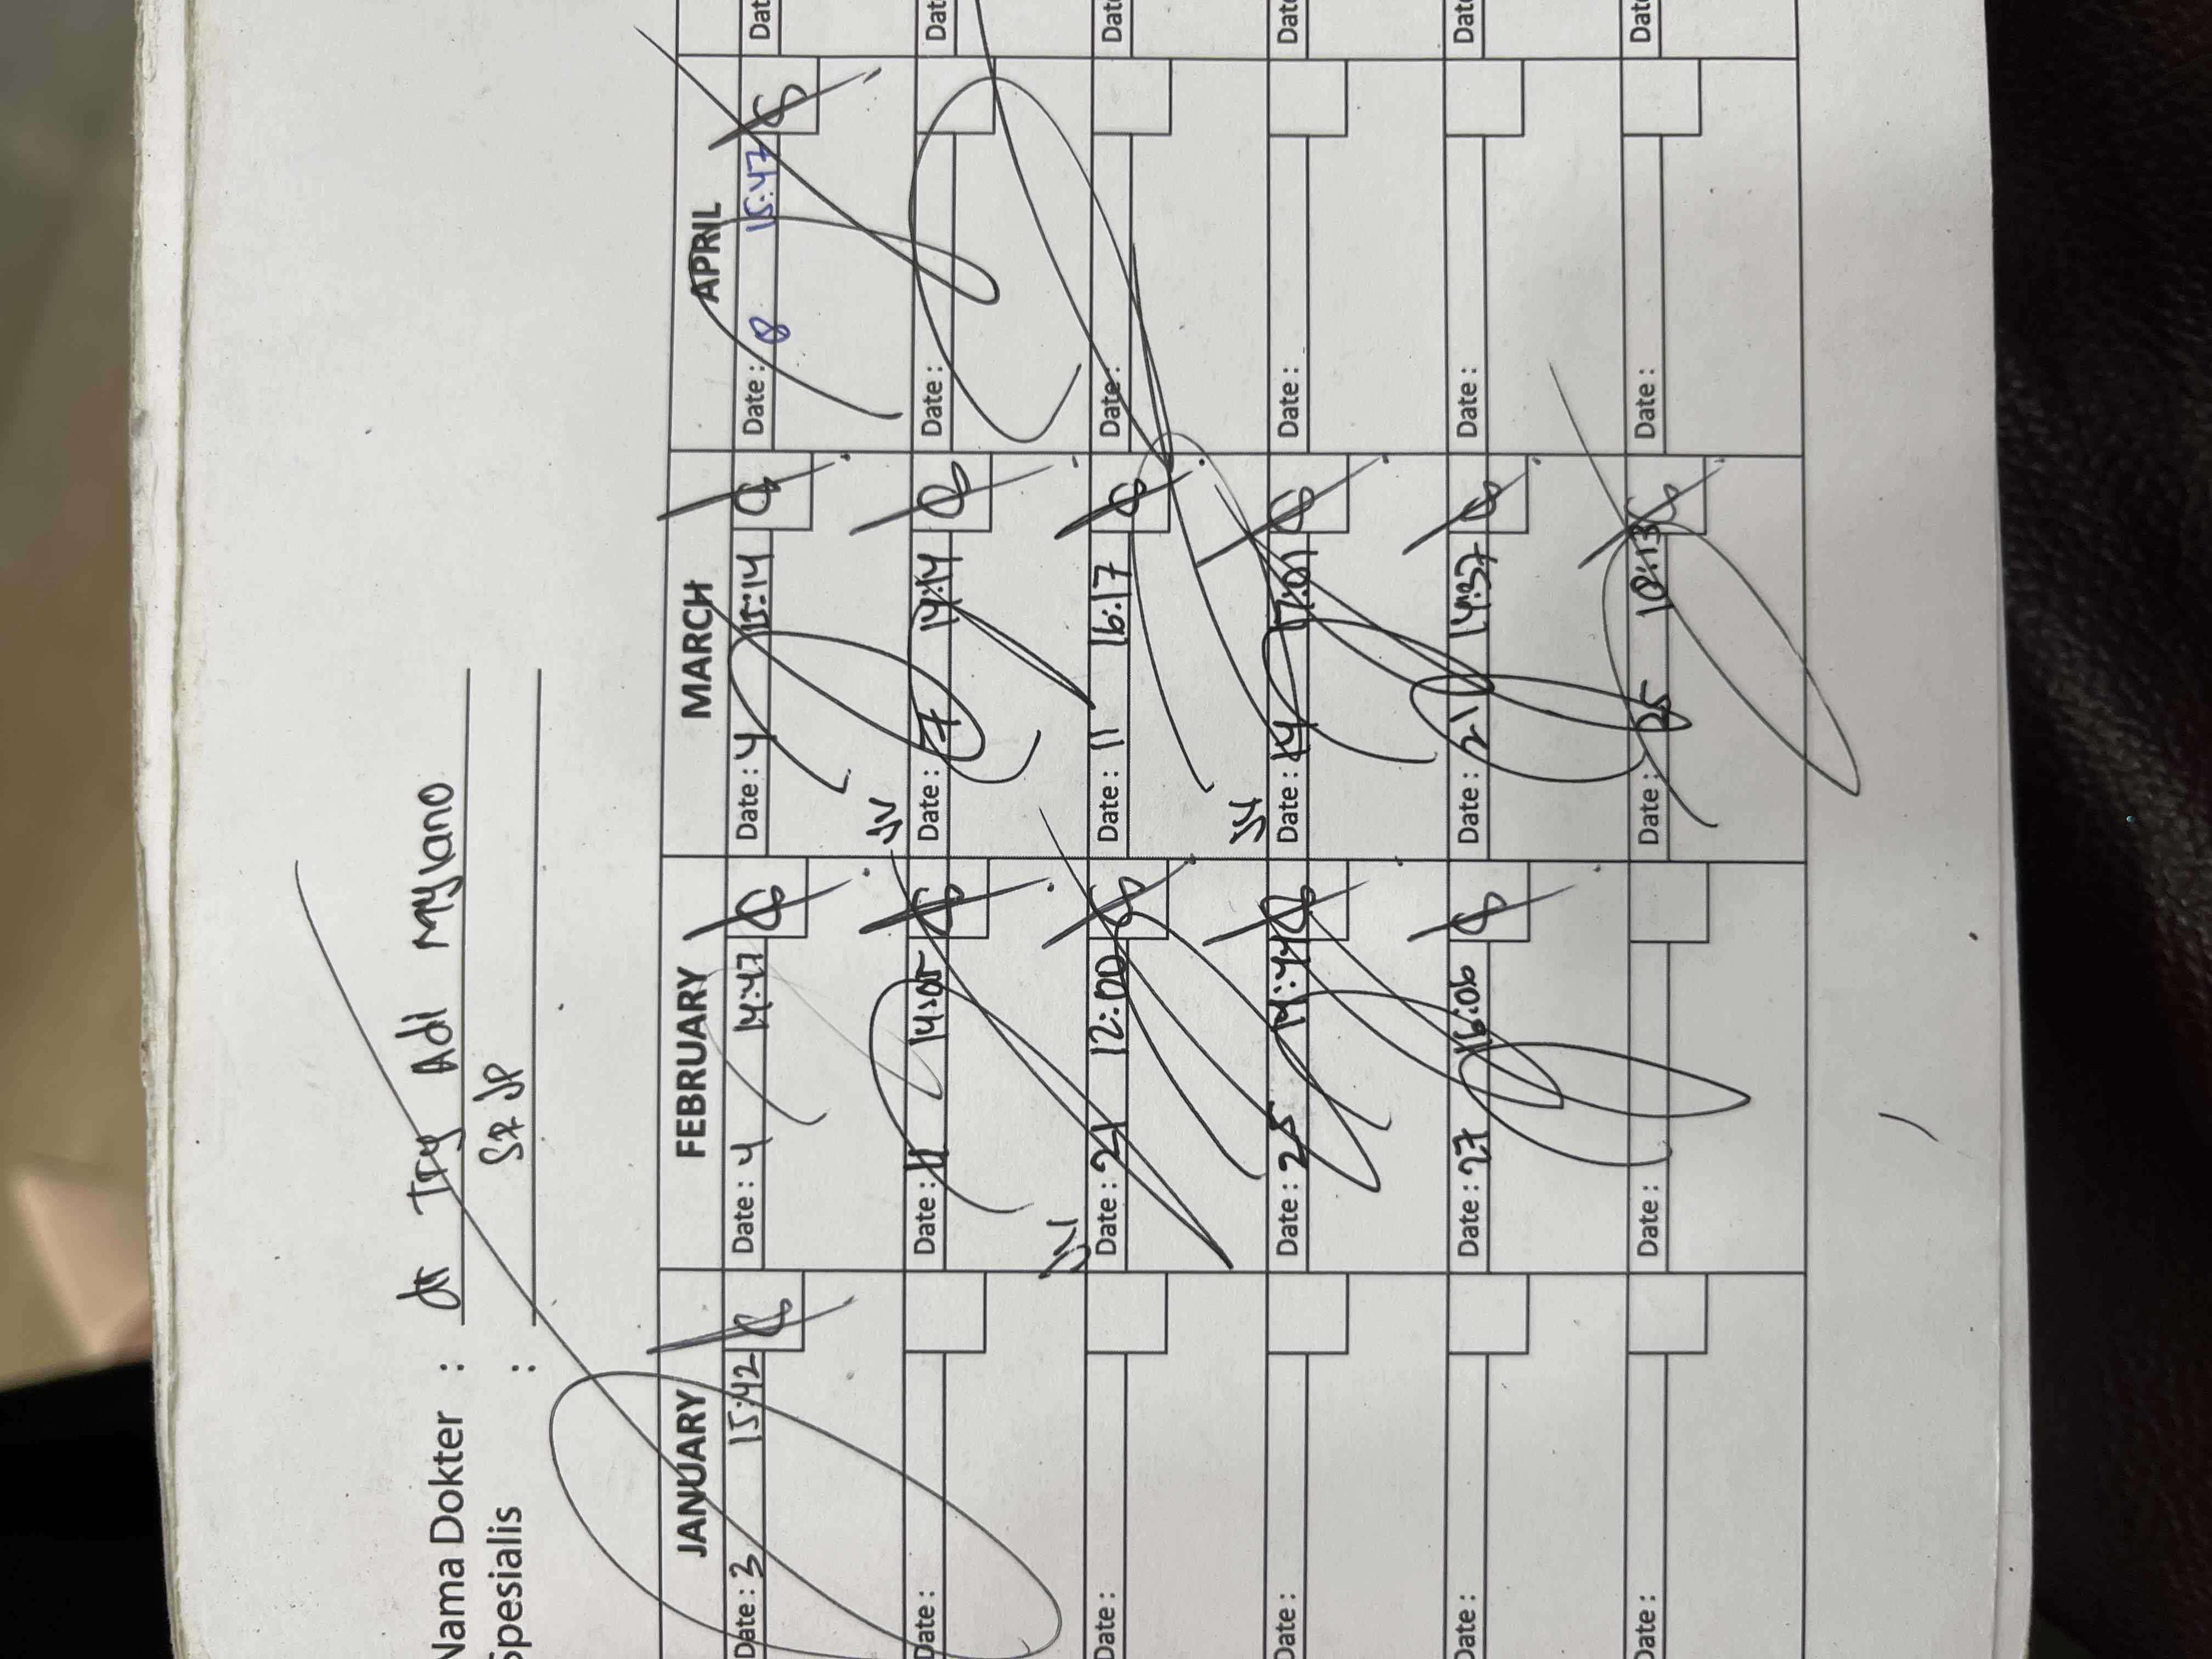 Nama Dokter : dr Try Adi Mylano
Spesialis : Sp JP
JANUARY FEBRUARY MARCH APRIL
Date : 3 15:42 Date : 4 14:47 Date : 4 15:14 Date : 8 15:47 Dat
Date : Date : 11 14:05 Date : 7 14:14 Date : Dat
Date : Date : 21 12:00 Date : 11 16:17 Date : Dat
Date : Date : 25 14:44 Date : 14 17:01 Date : Dat
Date : Date : 27 16:06 Date : 21 14:37 Date : Dat
Date : Date : Date : 25 Date : Dat